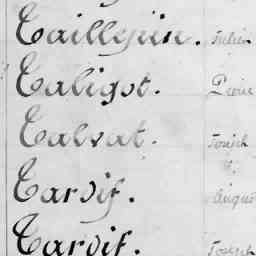 Taillepin. Julien
Taligot. Pierre
Talvat. Joseph
Tardif. August
Tardif. Joseph